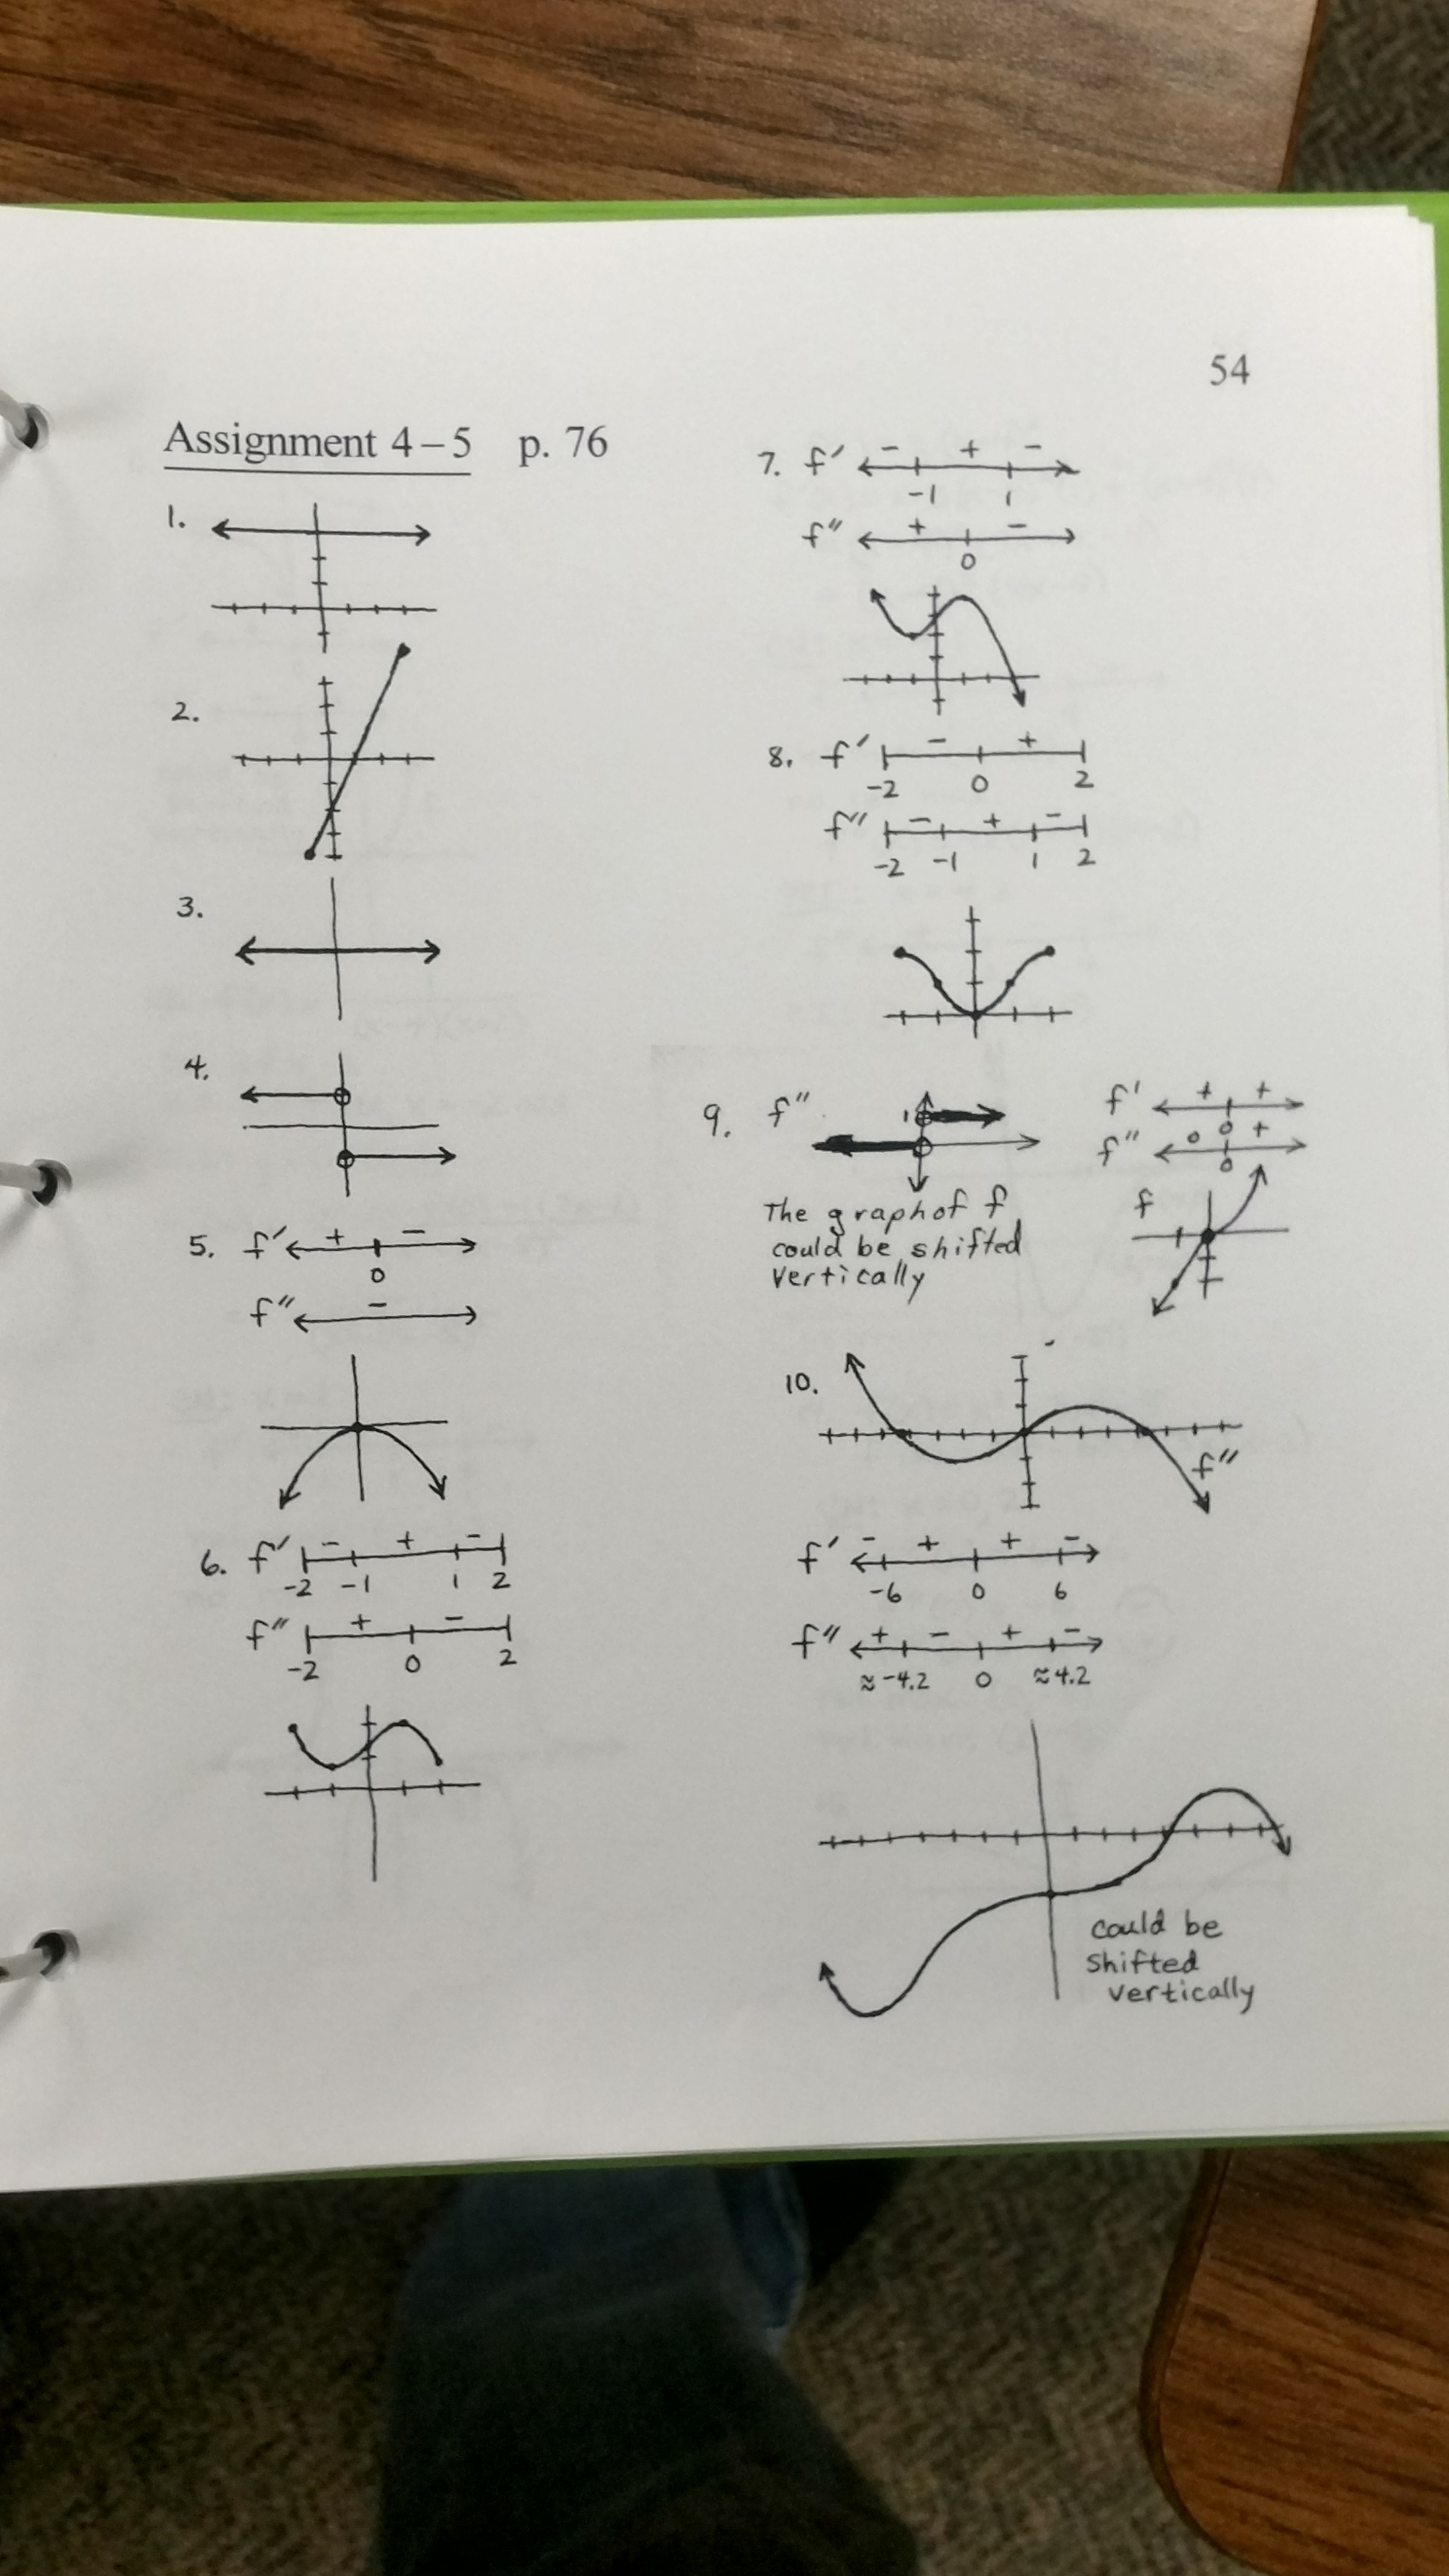 54
Assignment 4–5 p. 76
1.
2.
3.
4.
5. f′ + −
0
f″ −
6. f′ − + −
-2 -1 1 2
f″ + −
-2 0 2
7. f′ − + −
-1 1
f″ + −
0
8. f′ − +
-2 0 2
f″ − + −
-2 -1 1 2
9. f″ 1
The graph of f
could be shifted
vertically
f′ + +
0
f″ 0 +
0
f
10.
f″
f′ − + + −
-6 0 6
f″ + − + −
≈-4.2 0 ≈4.2
could be
shifted
vertically